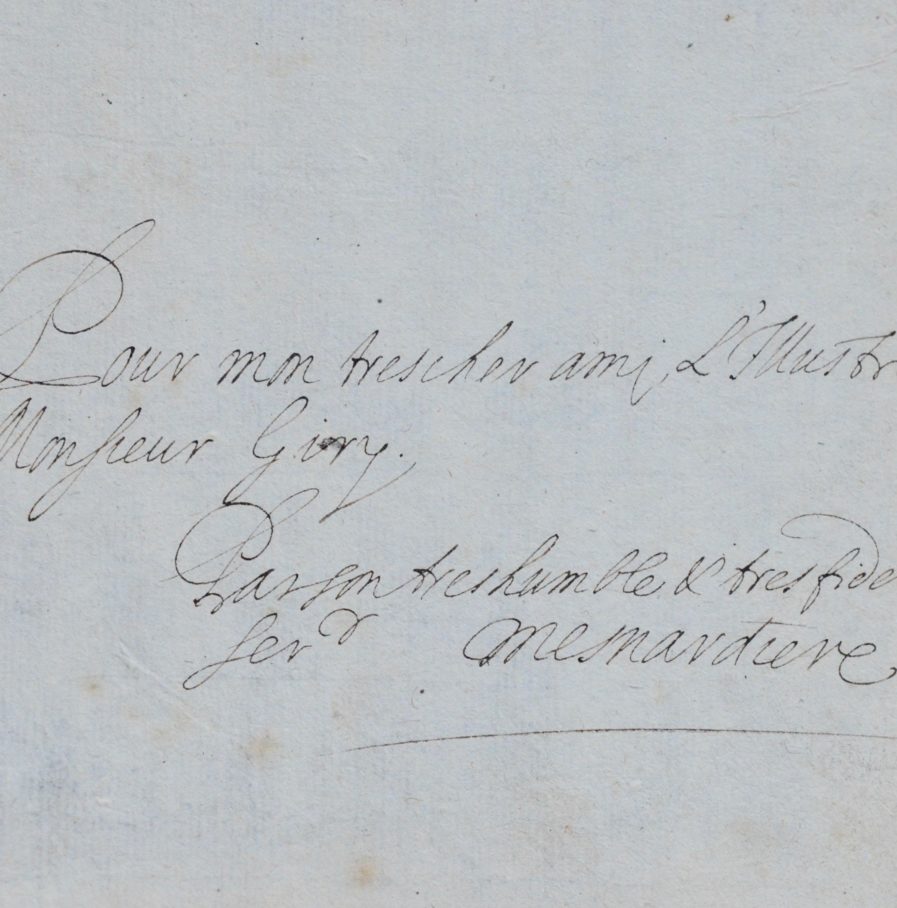 Pour mon trescher ami, L'Illustr
Monsieur Giry.
Par son treshumble & tres fide
serᵈʳ Mesnardiere